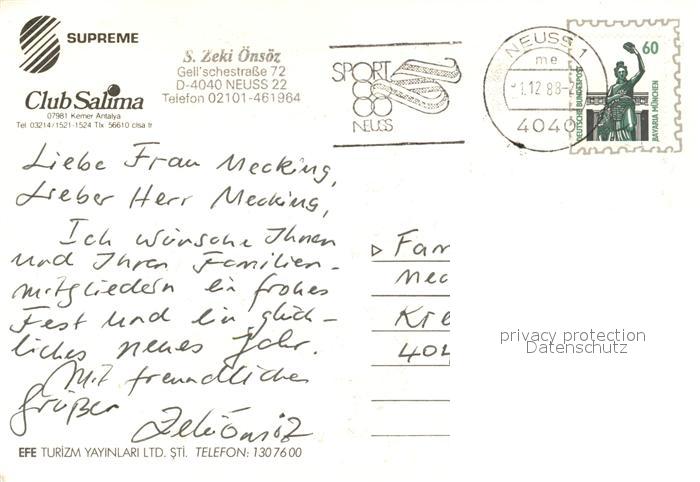 SUPREME
Club Salima
07981 Kemer Antalya
Tel 03214/1521-1524 Tlx 56610 clsa tr
S. Zeki Önsöz
Gell'schestraße 72
D-4040 NEUSS 22
Telefon 02101-461964
SPORT
NEUSS
NEUSS 1
me
-1.12.88-2
4040
60
DEUTSCHE BUNDESPOST
BAVARIA MÜNCHEN
Liebe Frau Mecking,
Lieber Herr Mecking,
Ich wünsche Ihnen
und Ihren Familien-
mitgliedern ein frohes
Fest und ein glück-
liches neues Jahr.
Mit freundlichen
Grüßen
Zeki Önsöz
Fam
Mec
Kre
404
privacy protection
Datenschutz
EFE TURİZM YAYINLARI LTD. ŞTİ. TELEFON: 130 76 00